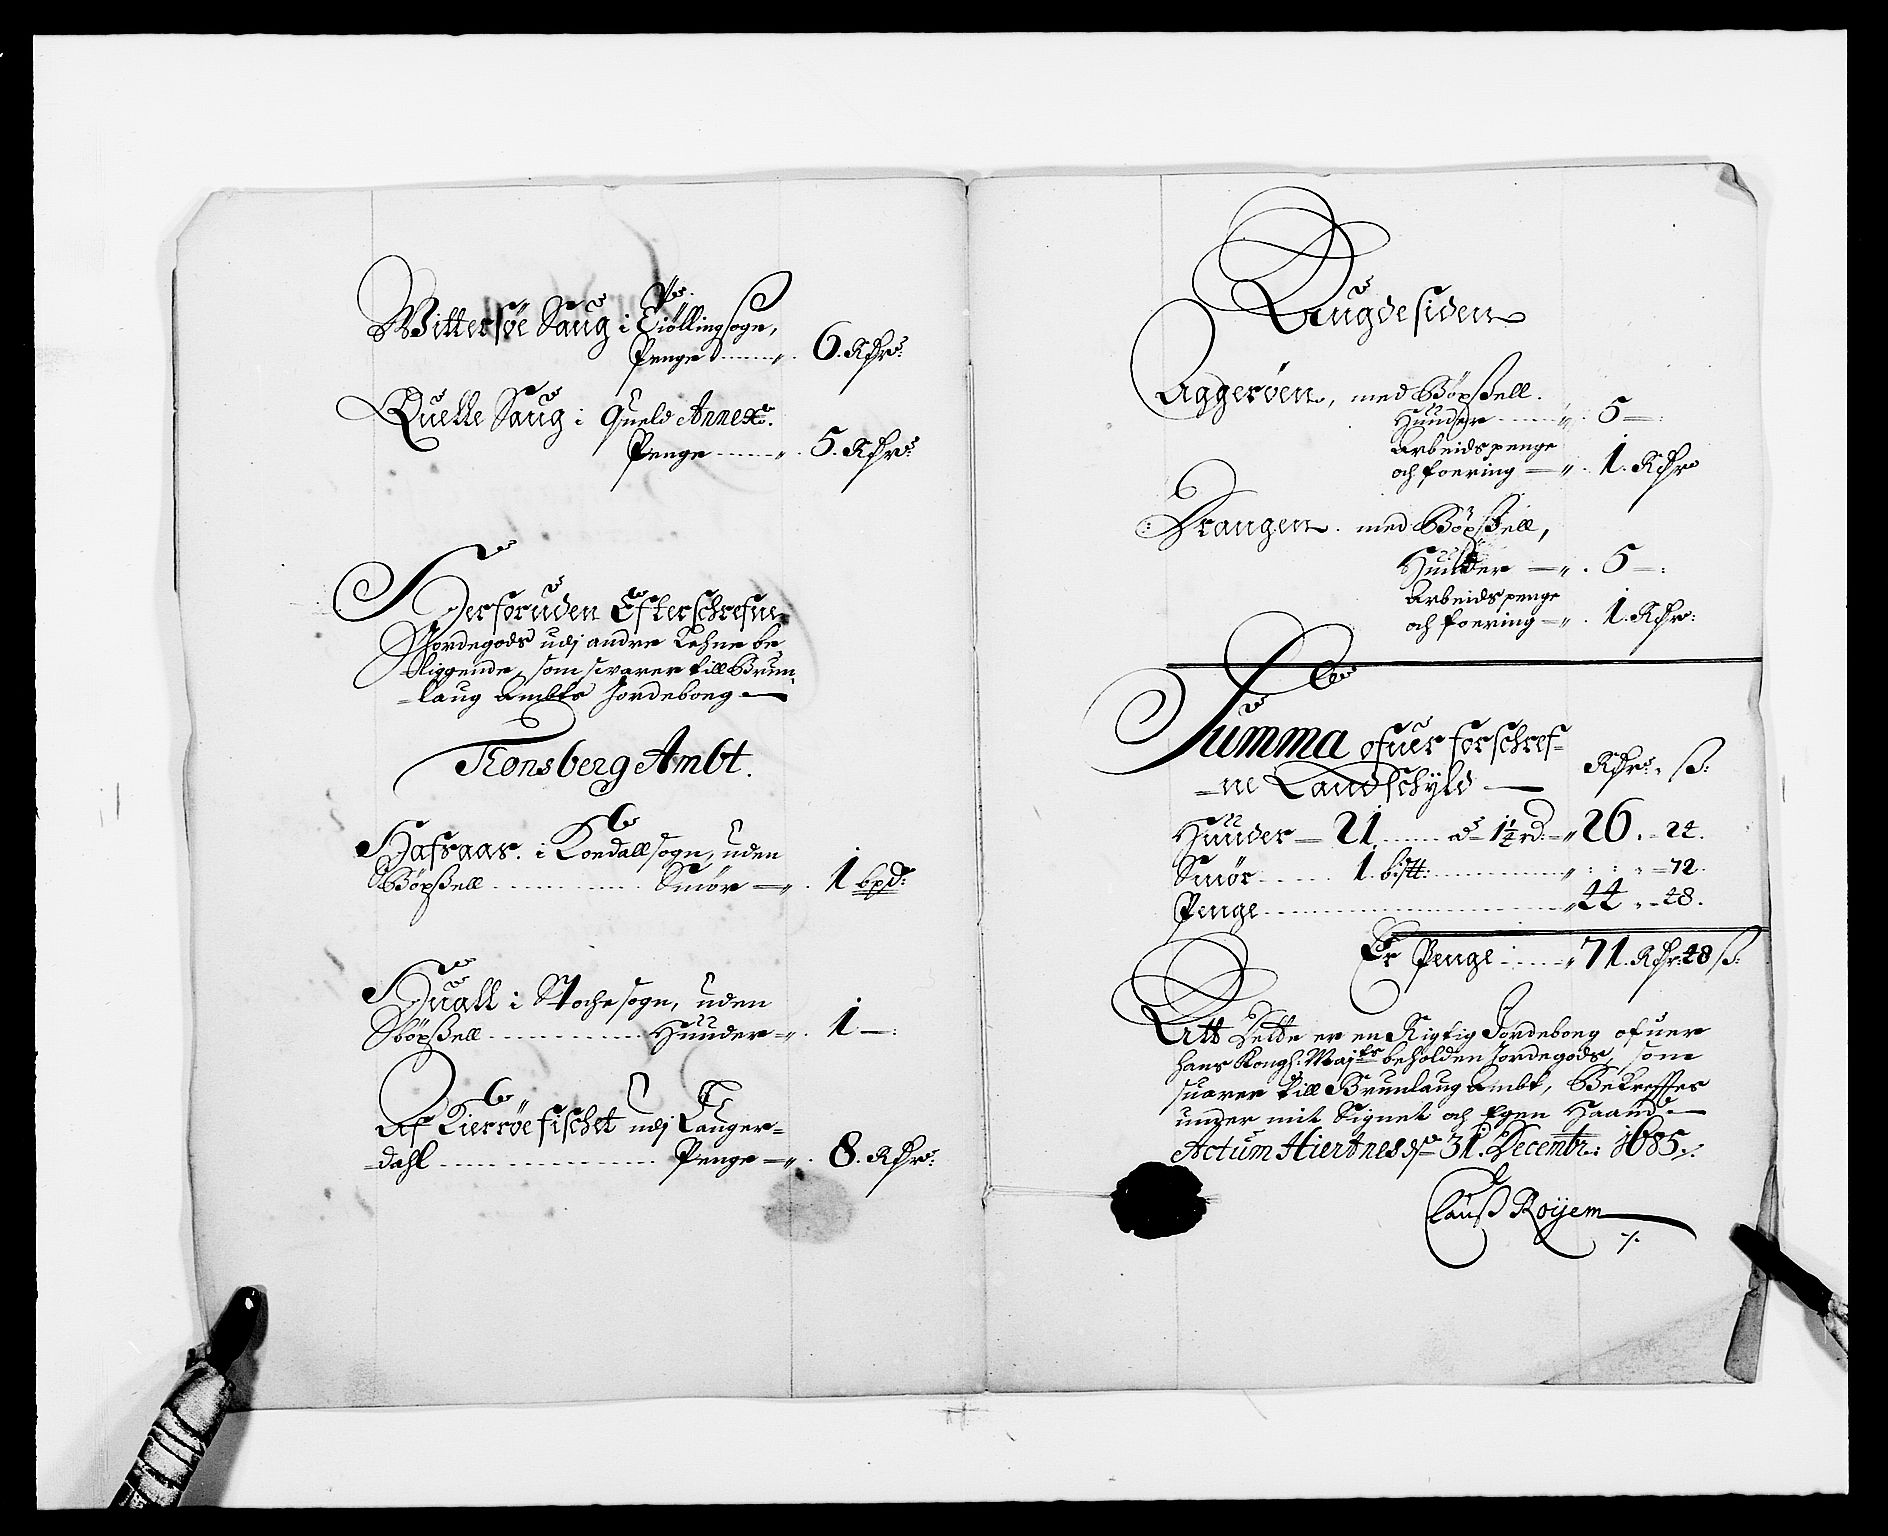 Wittersøe Saug i Tiøllingsogn,
Penge ..... „ . 6. Rdr:
Quelle Saug i Queld Annex.
Penge ..... „ . 5. Rdr:
Derforuden Efterschrefne
Jordegods udj andre Lehne be
liggende, som svarer till Brun¸
-laug Ambts Jordeboeg —
Tönsberg Ambt.
Hafsaas. i Kodallsogn, uden
Böxßell ............ Smör — „ . 1 bpd:
Huall i Stochesogn, uden
böxßell ............ Huuder - „ . 1 —:
Af Kierrøefischet udj Langer=
-dahl ................ Penge — „ . 8. Rdr:
Augdesiden
Aggerøen, med Böxßell.
Huuder ....... „ . 5 —:
Arbeidspenge
och foering — „ . 1. Rdr
Drangen. med Böxßell,
Huuder — „ . 5 —:
Arbeidspenge
och foering — „ . 1. Rdr:
Summa ofuer forschref=
-ne Landschyld — Rdr: . ß:
Huuder — 21 ...... ad 1¼ rd: - „ 26. - 24.
Smör ...... 1. bißtt: ........ „ : : „ = 72.
Penge .................. „ 44 „ - 48.
Er Penge ..... „ 71. Rdr: 48 ß:
Att Dette er en Rigtig Jordeboeg ofuer
hans Kongl: Majts beholden Jordegods, som
suarer till Brunlaug Ambt, Bekreffter
under mit Signet och Egen Haand —
Actum Hiertnes dn 31. Decembr: 1685 ./.
Clauß Röyem
./.